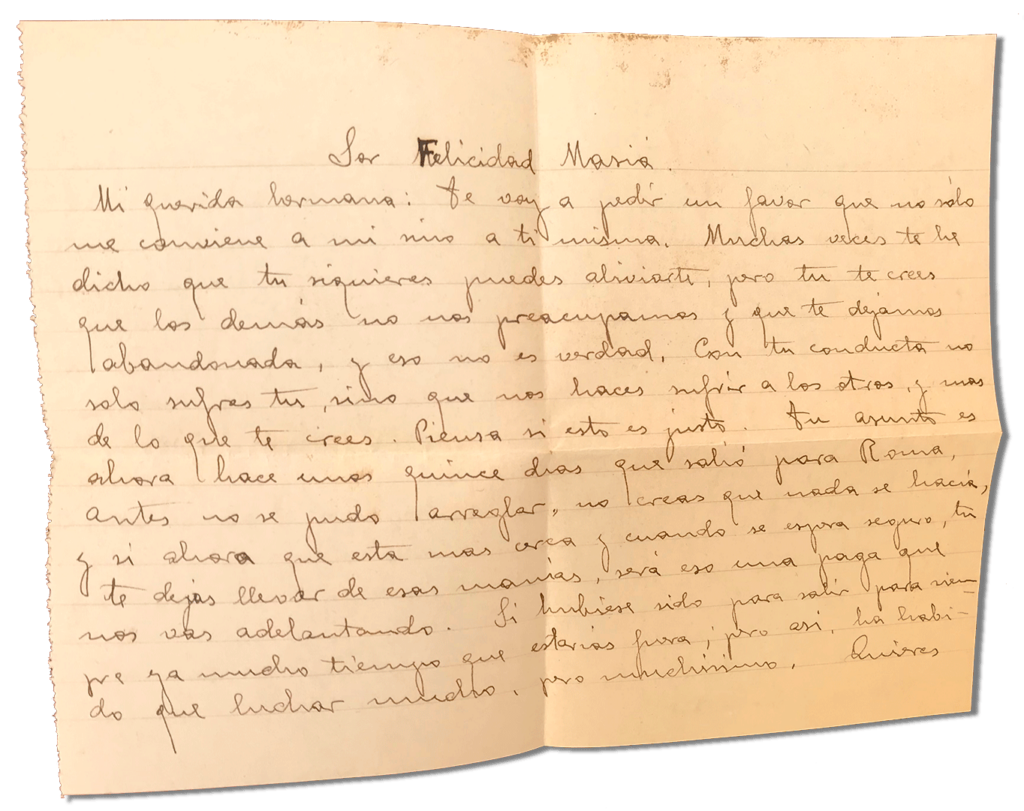 Sor Felicidad María.
Mi querida hermana: Te voy a pedir un favor que no sólo
me conviene a mi sino a ti misma. Muchas veces te he
dicho que tu si quieres puedes aliviarte, pero tu te crees
que los demás no nos preocupamos y que te dejamos
abandonada, y eso no es verdad. Con tu conducta no
solo sufres tu, sino que nos haces sufrir a los otros, y mas
de lo que te crees. Piensa si esto es justo. Tu asunto es
ahora hace unos quince dias que salió para Roma,
antes no se pudo arreglar, no creas que nada se hacía,
y si ahora que esta mas cerca y cuando se espera seguro, tu
te dejas llevar de esas manías, será eso una paga que
nos vas adelantando. Si hubiese sido para salir para siem-
pre ya mucho tiempo que estarías fuera; pero así, ha habi-
do que luchar mucho, pero muchísimo. Quieres